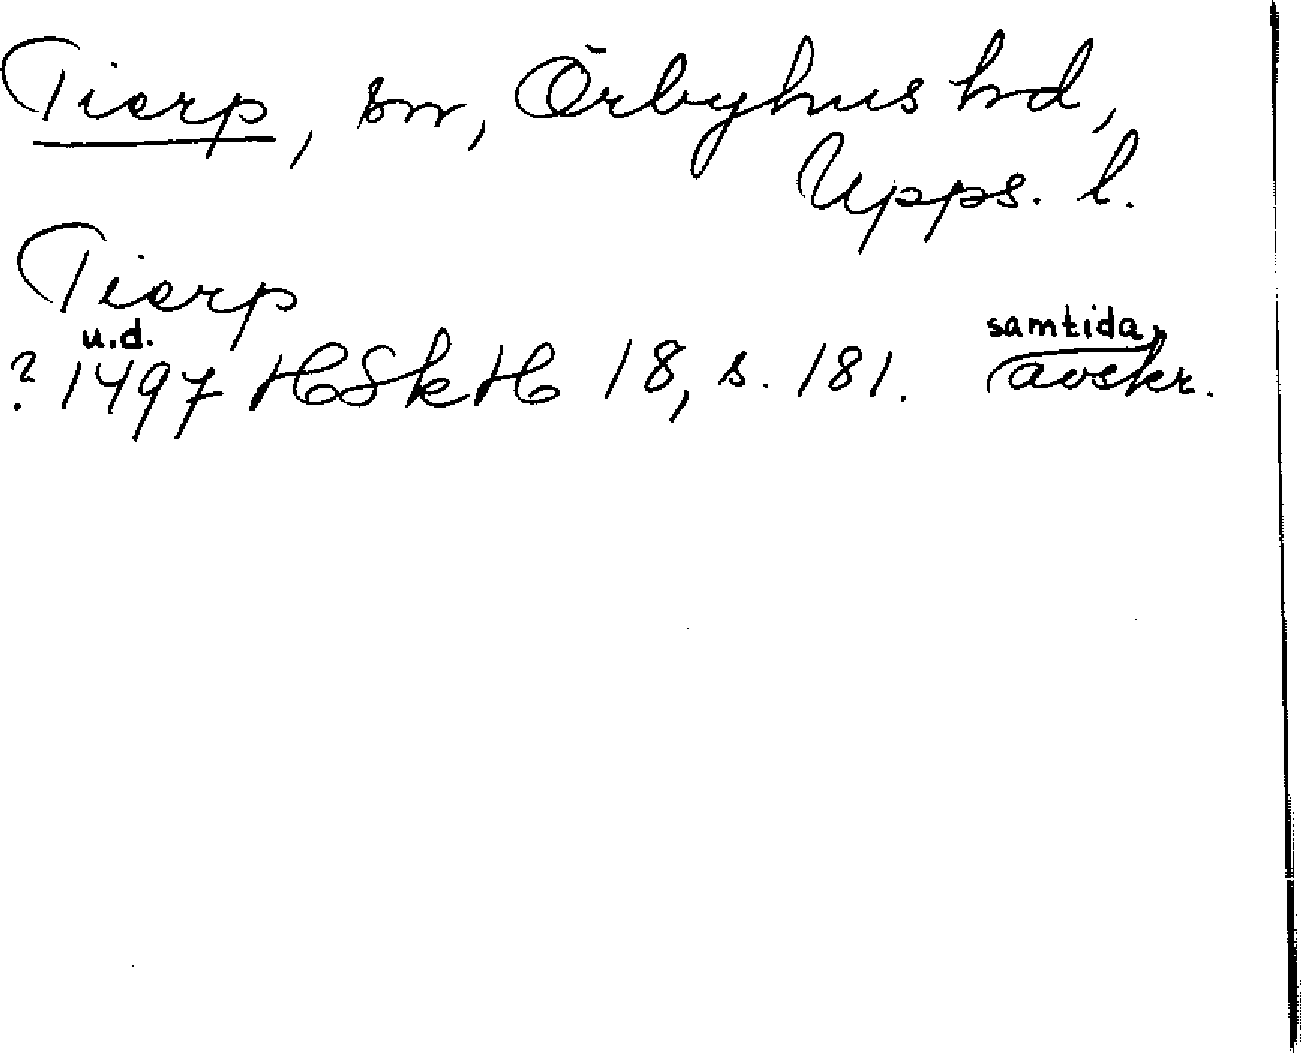 Tierp, sn, Örbyhus hd,
Upps. l.
Tierp
u.d. samtida
? 1497 HSkH 18, s. 181. avskr.